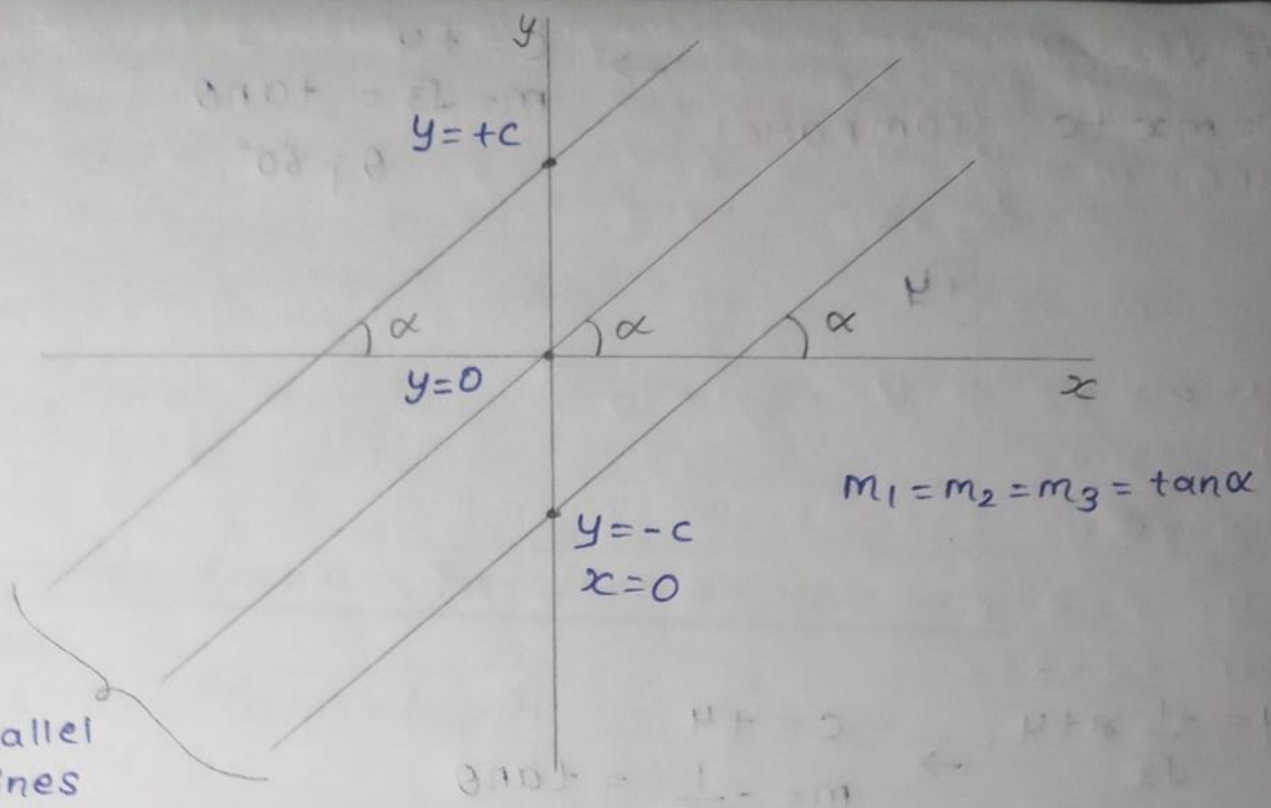 y
y=+c
α
α
α
y=0
x
m₁=m₂=m₃=tanα
y=-c
x=0
allel
nes